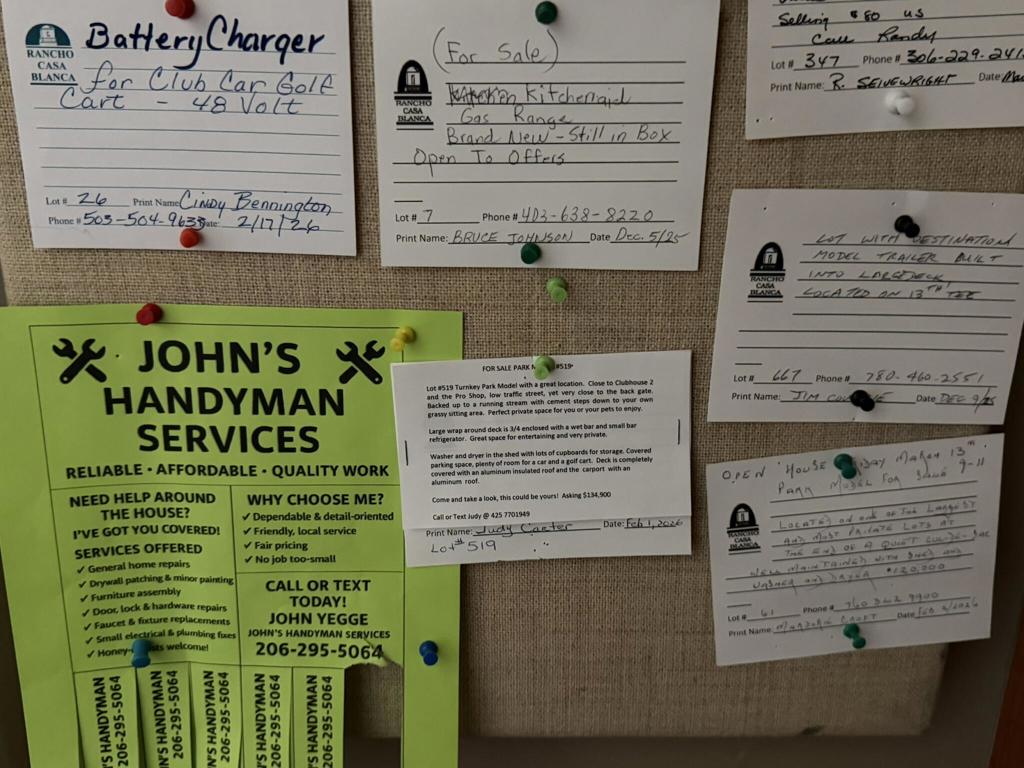 RANCHO
CASA
BLANCA
Battery Charger
for Club Car Golf
Cart - 48 Volt
Lot # 26 Print Name: Cindy Bennington
Phone # 503-504-9633 Date: 2/17/26
(For Sale)
RANCHO
CASA
BLANCA
Kitchenaid
Gas Range
Brand New - Still in Box
Open To Offers
Lot # 7 Phone # 403-638-8220
Print Name: BRUCE JOHNSON Date Dec. 5/25
Selling $80 US
Call Randy
Lot # 347 Phone # 306-229-241
Print Name: R. SEIVEWRIGHT Date:
RANCHO
CASA
BLANCA
LOT WITH DESTINATION
MODEL TRAILER BUILT
INTO LARGE DECK
LOCATED ON 13TH TEE
Lot # 667 Phone # 780-460-2551
Print Name: JIM Date DEC 9/25
JOHN'S
HANDYMAN
SERVICES
RELIABLE • AFFORDABLE • QUALITY WORK
NEED HELP AROUND
THE HOUSE?
I'VE GOT YOU COVERED!
SERVICES OFFERED
✓ General home repairs
✓ Drywall patching & minor painting
✓ Furniture assembly
✓ Door, lock & hardware repairs
✓ Faucet & fixture replacements
✓ Small electrical & plumbing fixes
✓ Honey- sts welcome!
WHY CHOOSE ME?
✓ Dependable & detail-oriented
✓ Friendly, local service
✓ Fair pricing
✓ No job too-small
CALL OR TEXT
TODAY!
JOHN YEGGE
JOHN'S HANDYMAN SERVICES
206-295-5064
'S HANDYMAN
206-295-5064
N'S HANDYMAN
206-295-5064
N'S HANDYMAN
206-295-5064
N'S HANDYMAN
206-295-5064
N'S HANDYMAN
206-295-5064
FOR SALE PARK M #519*
Lot #519 Turnkey Park Model with a great location. Close to Clubhouse 2
and the Pro Shop, low traffic street, yet very close to the back gate.
Backed up to a running stream with cement steps down to your own
grassy sitting area. Perfect private space for you or your pets to enjoy.
Large wrap around deck is 3/4 enclosed with a wet bar and small bar
refrigerator. Great space for entertaining and very private.
Washer and dryer in the shed with lots of cupboards for storage. Covered
parking space, plenty of room for a car and a golf cart. Deck is completely
covered with an aluminum insulated roof and the carport with an
aluminum roof.
Come and take a look, this could be yours! Asking $134,900
Call or Text Judy @ 425 7701949
Print Name: Judy Carter Date: Feb 1, 2026
Lot# 519
OPEN HOUSE FRIDAY MARCH 13th
9-11
PARK MODEL FOR SALE
RANCHO
CASA
BLANCA
LOCATED ON ONE OF THE LARGEST
AND MOST PRIVATE LOTS AT
THE END OF A QUIET CUL-DE-SAC
WELL MAINTAINED WITH SHED AND
WASHER AND DRYER $120,000
Lot # 61 Phone # 760 9900
Print Name: CROFT Date FEB 2026